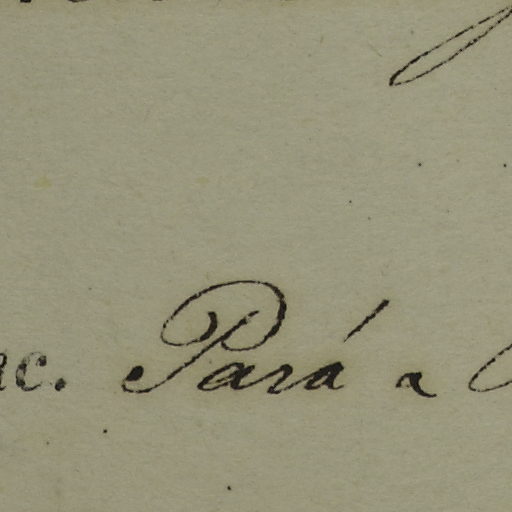 ac. Pará a